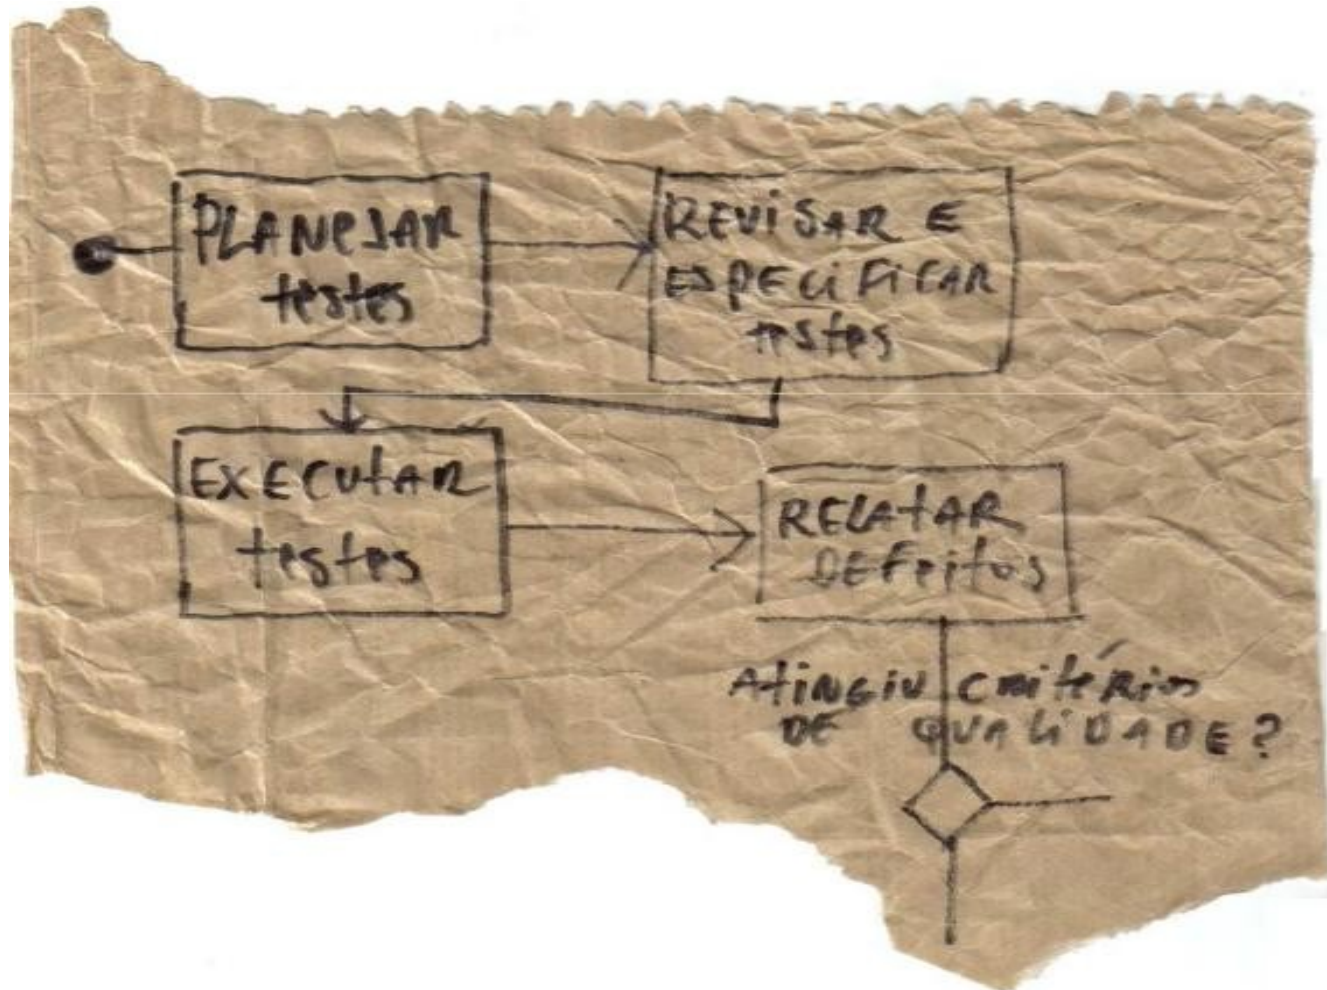 PLANEJAR
testes
REVISAR E
ESPECIFICAR
testes
EXECUTAR
testes
RELATAR
DEFEITOS
ATINGIU CRITÉRIOS
DE QUALIDADE?